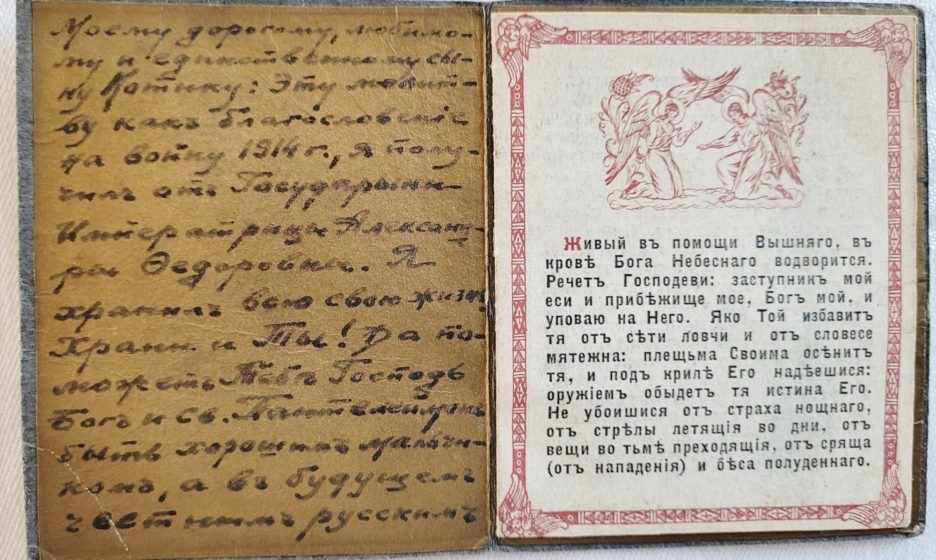 Моему дорогому, любимо-
му и единственному сы-
ну Котику: Эту молит-
ву какъ благословенiе
на войну 1914 г., я полу-
чилъ отъ Государыни
Императрицы Александ-
ры Ѳедоровны. Я
хранилъ всю свою жизнь
Храни и Ты! Да по-
можетъ Тебѣ Господь
Богъ и Св. Пантелеймонъ
быть хорошимъ мальчи-
комъ, а въ будущемъ
честнымъ русскимъ
Живый въ помощи Вышняго, въ
кровѣ Бога Небеснаго водворится.
Речетъ Господеви: заступник мой
еси и прибѣжище мое, Богъ мой, и
уповаю на Него. Яко Той избавитъ
тя отъ сѣти ловчи и отъ словесе
мятежна: плещьма Своима осѣнитъ
тя, и подъ крилѣ Его надѣешися:
оружiемъ обыдетъ тя истина Его.
Не убоишися отъ страха нощнаго,
отъ стрѣлы летящiя во дни, отъ
вещи во тьмѣ преходящiя, отъ сряща
(отъ нападенiя) и бѣса полуденнаго.